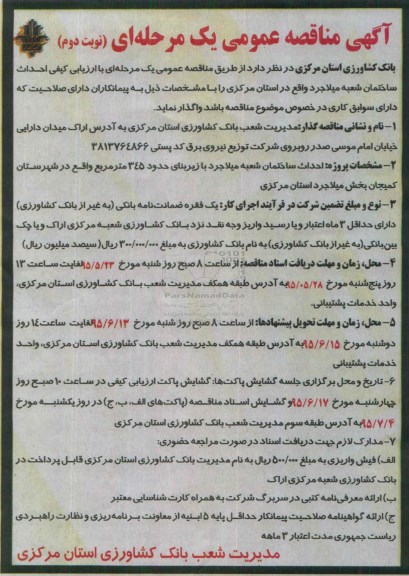 آگهی مناقصه عمومی یک مرحله‌ای (نوبت دوم)
بانک کشاورزی استان مرکزی در نظر دارد از طریق مناقصه عمومی یک مرحله‌ای با ارزیابی کیفی احداث
ساختمان شعبه میلاجرد واقع در استان مرکزی را با مشخصات ذیل به پیمانکاران دارای صلاحیت که
دارای سوابق کاری در خصوص موضوع مناقصه باشد واگذار نماید.
۱- نام و نشانی مناقصه گذار: مدیریت شعب بانک کشاورزی استان مرکزی به آدرس اراک میدان دارایی
خیابان امام موسی صدر روبروی شرکت توزیع نیروی برق کد پستی ۳۸۱۳۷۶۴۸۶۶
۲- مشخصات پروژه: احداث ساختمان شعبه میلاجرد با زیربنای حدود ۳۴۵ مترمربع واقع در شهرستان
کمیجان بخش میلاجرد استان مرکزی
۳- نوع و مبلغ تضمین شرکت در فرآیند اجرای کار: یک فقره ضمانت‌نامه بانکی (به غیر از بانک کشاورزی)
دارای حداقل ۳ ماه اعتبار و یا رسید واریز وجه نقد نزد بانک کشاورزی شعبه مرکزی اراک و یا چک
بین‌بانکی (به غیر از بانک کشاورزی) به نام بانک کشاورزی به مبلغ ۳۰۰/۰۰۰/۰۰۰ ریال( سیصد میلیون ریال)
۴- محل، زمان و مهلت دریافت اسناد مناقصه: از ساعت ۸ صبح روز شنبه مورخ ۹۵/۵/۲۳ لغایت ساعت ۱۳
روز پنج‌شنبه مورخ ۹۵/۰۵/۲۸ به آدرس طبقه همکف مدیریت شعب بانک کشاورزی استان مرکزی،
واحد خدمات پشتیبانی.
۵- محل، زمان و مهلت تحویل پیشنهادها: از ساعت ۸ صبح روز شنبه مورخ ۹۵/۶/۱۳ لغایت ساعت ۱۴ روز
دوشنبه مورخ ۹۵/۶/۱۵ به آدرس طبقه همکف مدیریت شعب بانک کشاورزی استان مرکزی، واحد
خدمات پشتیبانی
۶- تاریخ و محل برگزاری جلسه گشایش پاکت‌ها: گشایش پاکت ارزیابی کیفی در ساعت ۱۰ صبح روز
چهارشنبه مورخ ۹۵/۶/۱۷ و گشایش اسناد مناقصه (پاکت‌های الف، ب، ج) در روز یکشنبه مورخ
۹۵/۷/۴ به آدرس طبقه سوم مدیریت شعب بانک کشاورزی استان مرکزی
۷- مدارک لازم جهت دریافت اسناد در صورت مراجعه حضوری:
الف) فیش واریزی به مبلغ ۵۰۰/۰۰۰ ریال به نام مدیریت بانک کشاورزی استان مرکزی قابل پرداخت در
بانک کشاورزی شعبه مرکزی اراک
ب) ارائه معرفی‌نامه کتبی در سربرگ شرکت به همراه کارت شناسایی معتبر
ج) ارائه گواهینامه صلاحیت پیمانکار حداقل پایه ۵ ابنیه از معاونت برنامه‌ریزی و نظارت راهبردی
ریاست جمهوری مدت اعتبار ۳ ماهه
مدیریت شعب بانک کشاورزی استان مرکزی